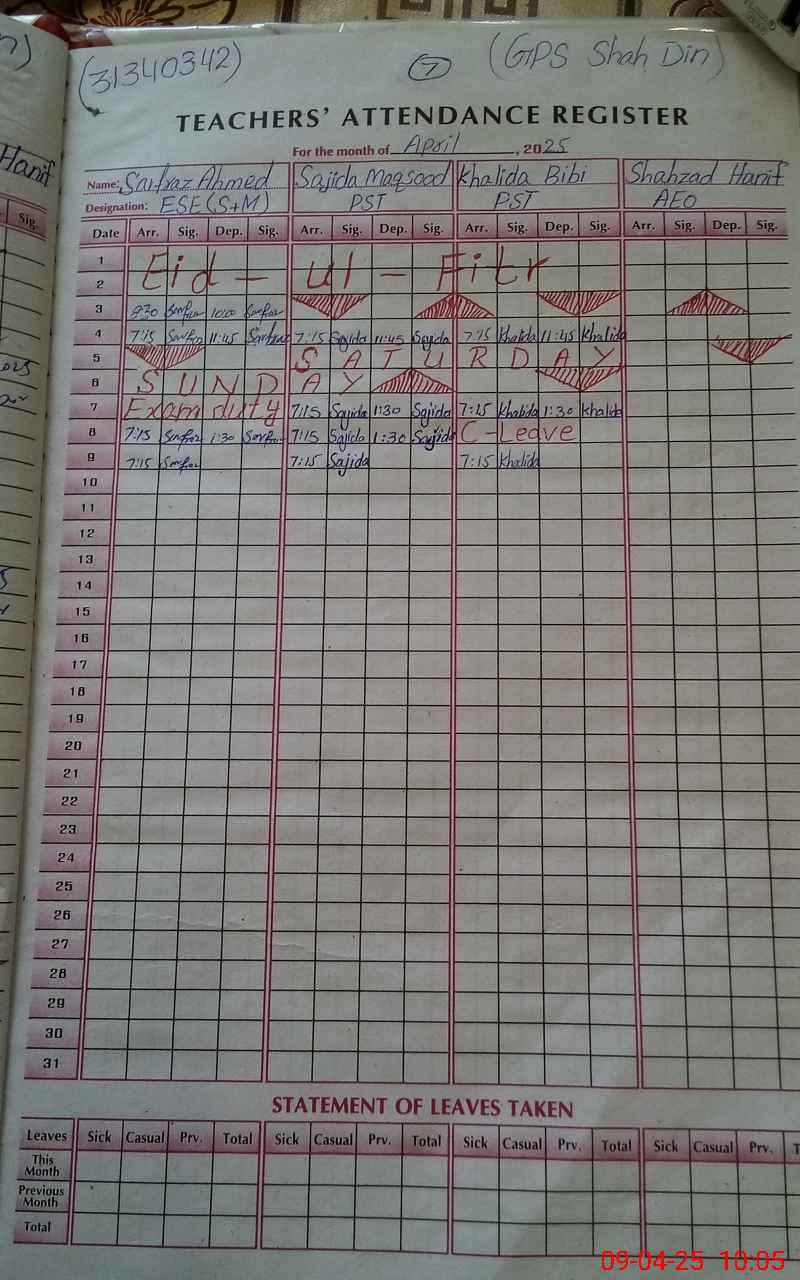 (31340342) 7 (GPS Shah Din)
TEACHERS' ATTENDANCE REGISTER
For the month of April, 2025
Hanif
Name: Sarfraz Ahmed Sajida Maqsood Khalida Bibi Shahzad Hanif
Designation: ESE(S+M) PST PST AEO
Sig.
Date Arr. Sig. Dep. Sig. Arr. Sig. Dep. Sig. Arr. Sig. Dep. Sig. Arr. Sig. Dep. Sig.
1
Eid - ul - Fitr
2
3 8:30 10:00
4 7:15 11:45 7:15 Sajida 11:45 Sajida 7:15 Khalida 11:45 Khalida
5 SATURDAY
6 SUNDAY
7 Exam duty 7:15 Sajida 1:30 Sajida 7:15 Khalida 1:30 Khalida
8 7:15 1:30 7:15 Sajida 1:30 Sajida C-Leave
9 7:15 7:15 Sajida 7:15 Khalida
10
11
12
13
14
15
16
17
18
19
20
21
22
23
24
25
26
27
28
29
30
31
STATEMENT OF LEAVES TAKEN
Leaves Sick Casual Prv. Total Sick Casual Prv. Total Sick Casual Prv. Total Sick Casual Prv.
This Month
Previous Month
Total
09-04-25 10:05